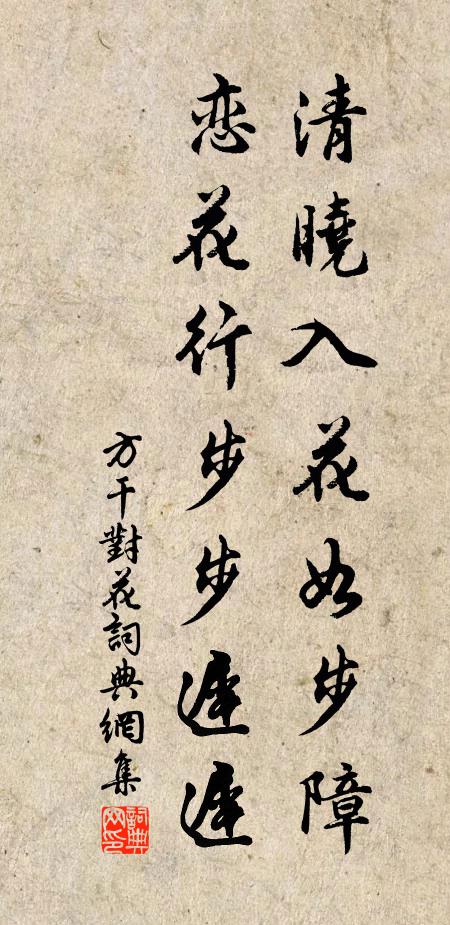 清曉入花如步障
恋花行步步遲遲
方干對花詞典網集
詞典網印